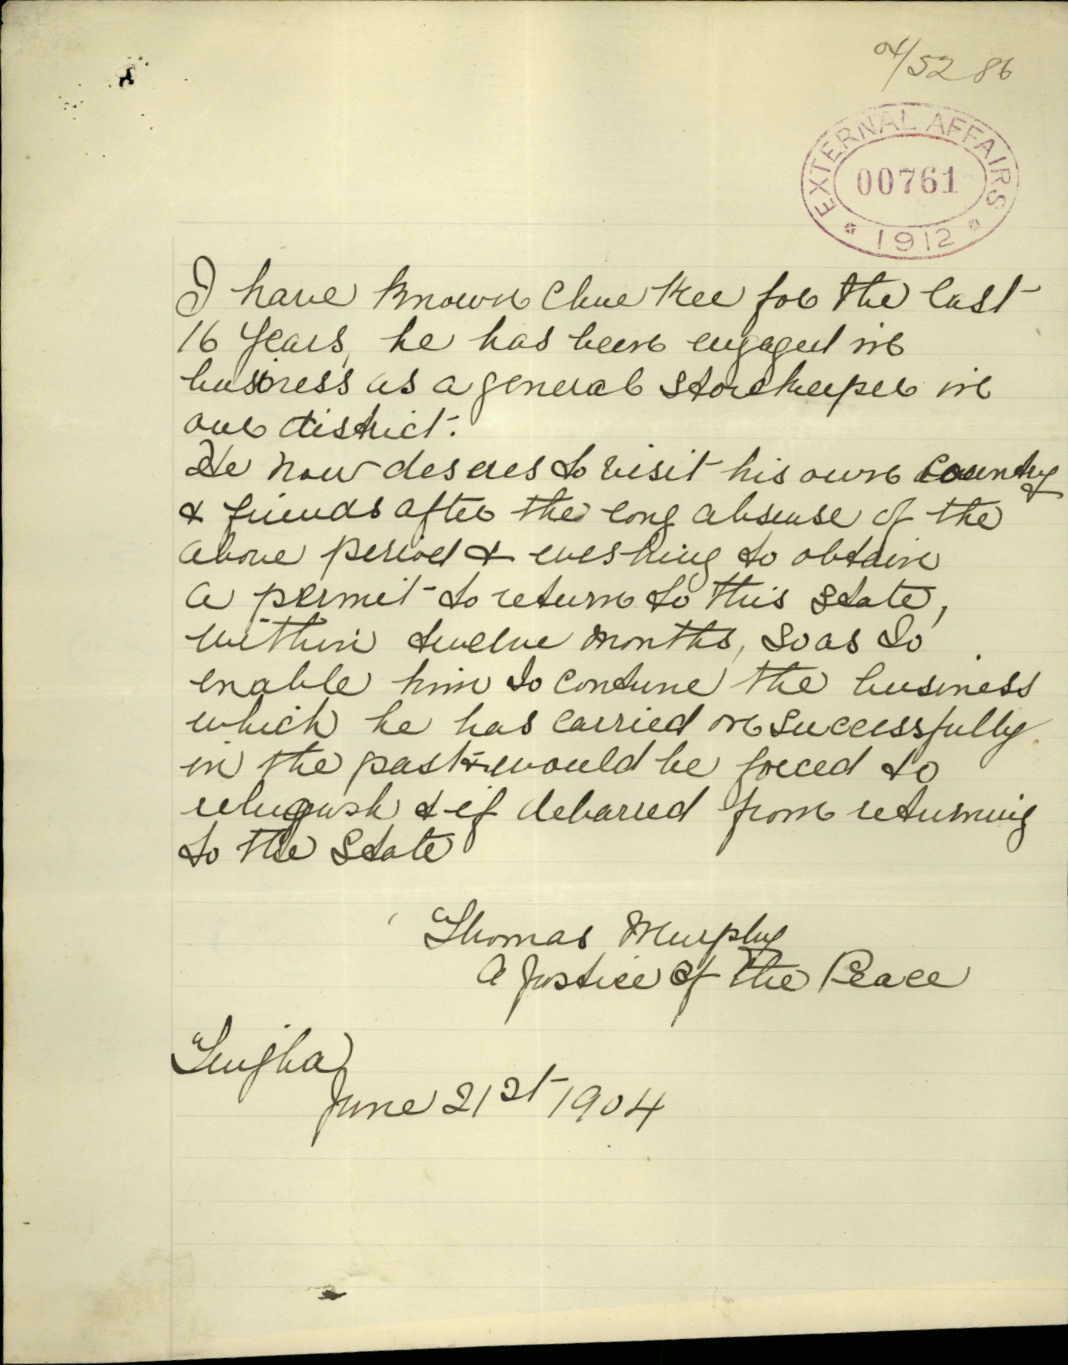 04/5286
EXTERNAL AFFAIRS
00761
1912
I have known Chue Kee for the last
16 years, he has been engaged in
business as a general storekeeper in
our district.
He now desires to visit his own country
& friends after the long absense of the
above period & wishing to obtain
a permit to return to this State,
within twelve months, so as to
enable him to contune the business
which he has carried on successfully
in the past & would be forced to
relinquish & if debarred from returning
to the State
Thomas Murphy
A Justice of the Peace
Tingha
June 21st 1904